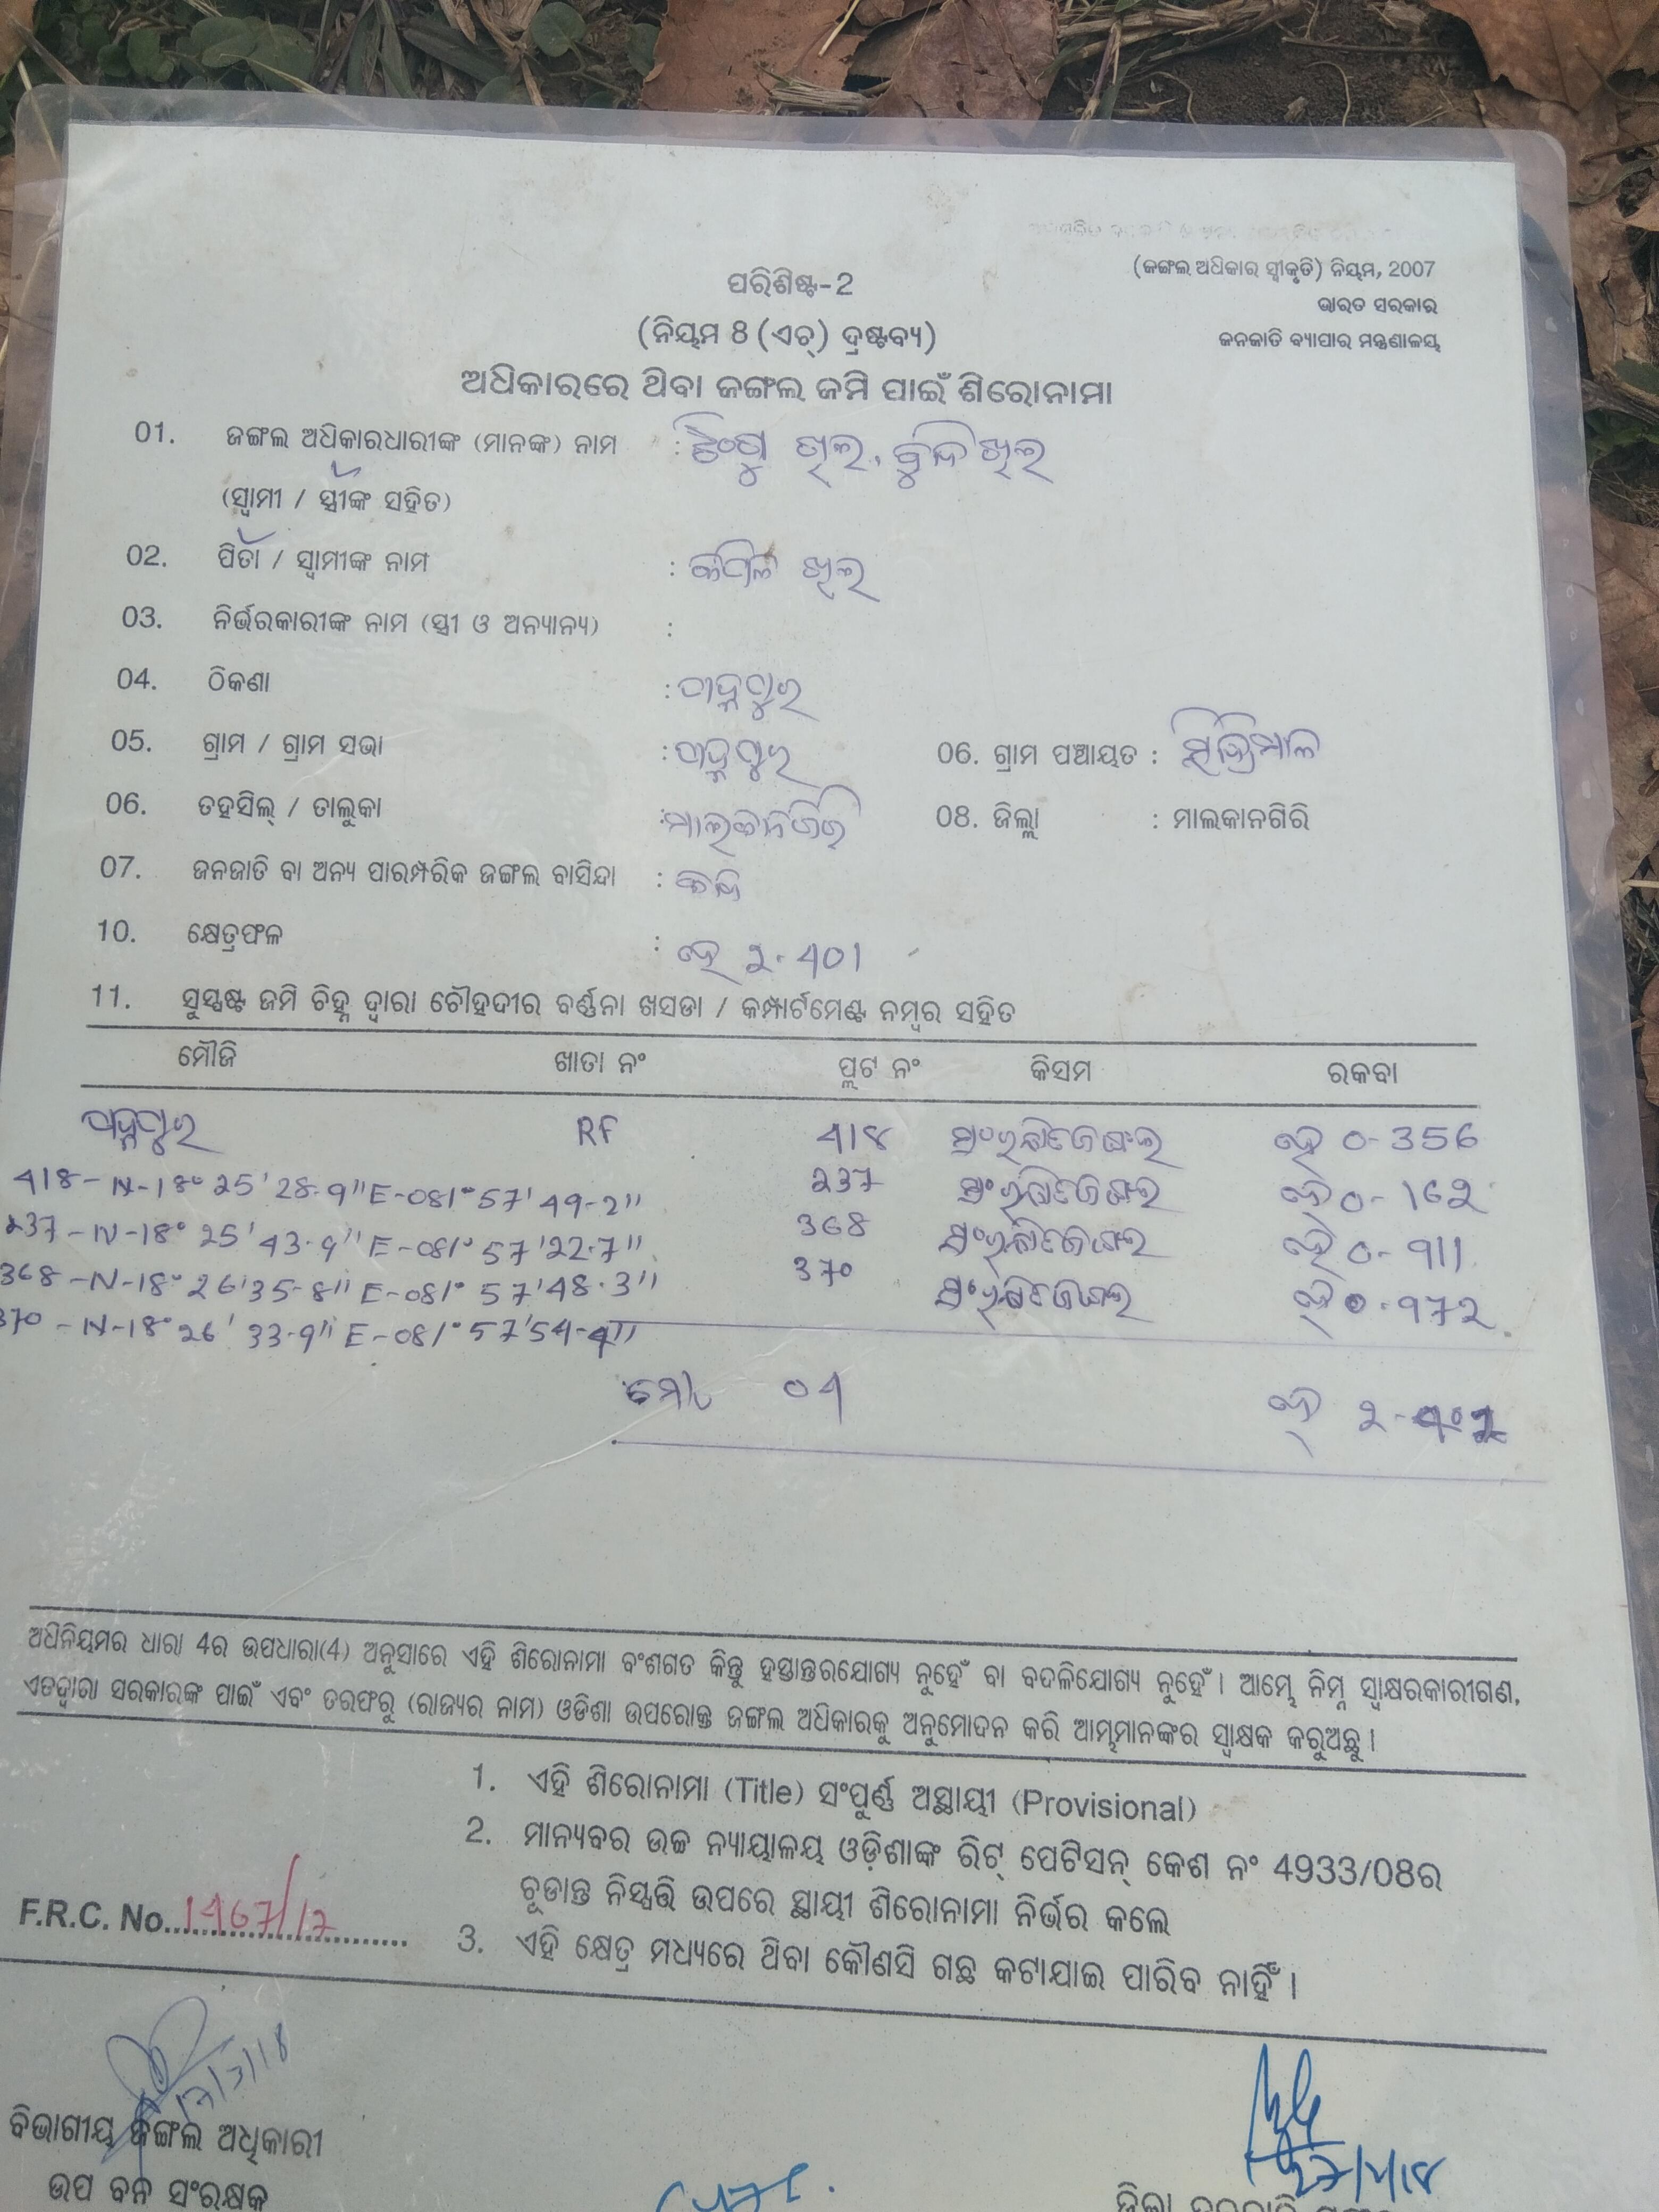 (ଜଙ୍ଗଲ ଅଧିକାର ସ୍ୱୀକୃତି) ନିୟମ, 2007
ପରିଶିଷ୍ଟ-2
ଭାରତ ସରକାର
(ନିୟମ 8 (ଏଚ୍) ଦ୍ରଷ୍ଟବ୍ୟ)
ଜନଜାତି ବ୍ୟାପାର ମନ୍ତ୍ରଣାଳୟ
ଅଧିକାରରେ ଥିବା ଜଙ୍ଗଲ ଜମି ପାଇଁ ଶିରୋନାମା
01. ଜଙ୍ଗଲ ଅଧିକାରଧାରୀଙ୍କ (ମାନଙ୍କ) ନାମ :
(ସ୍ୱାମୀ / ସ୍ତ୍ରୀଙ୍କ ସହିତ)
02. ପିତା / ସ୍ୱାମୀଙ୍କ ନାମ :
03. ନିର୍ଭରକାରୀଙ୍କ ନାମ (ସ୍ତ୍ରୀ ଓ ଅନ୍ୟାନ୍ୟ) :
04. ଠିକଣା :
05. ଗ୍ରାମ / ଗ୍ରାମ ସଭା : 06. ଗ୍ରାମ ପଞ୍ଚାୟତ :
06. ତହସିଲ୍ / ତାଲୁକା : ମାଲକାନଗିରି 08. ଜିଲ୍ଲା : ମାଲକାନଗିରି
07. ଜନଜାତି ବା ଅନ୍ୟ ପାରମ୍ପରିକ ଜଙ୍ଗଲ ବାସିନ୍ଦା :
10. କ୍ଷେତ୍ରଫଳ : ହେ 2.401
11. ସୁସ୍ପଷ୍ଟ ଜମି ଚିହ୍ନ ଦ୍ୱାରା ଚୌହଦୀର ବର୍ଣ୍ଣନା ଖସଡା / କମ୍ପାର୍ଟମେଣ୍ଟ ନମ୍ବର ସହିତ
ମୌଜି ଖାତା ନଂ ପ୍ଲଟ ନଂ କିସମ ରକବା
RF 418 ହେ 0-356
418-N-18° 25' 28.9" E-081° 57' 49-2" 237 ହେ 0-162
237-N-18° 25' 43.9" E-081° 57' 22.7" 368 ହେ 0-911
368-N-18° 26' 35-8" E-081° 57' 48.3" 370 ହେ 0.972
370-N-18° 26' 33-9" E-081° 57' 54-4"
ମୋଟ 04 ହେ
ଅଧିନିୟମର ଧାରା 4ର ଉପଧାରା(4) ଅନୁସାରେ ଏହି ଶିରୋନାମା ବଂଶଗତ କିନ୍ତୁ ହସ୍ତାନ୍ତରଯୋଗ୍ୟ ନୁହେଁ ବା ବଦଳିଯୋଗ୍ୟ ନୁହେଁ। ଆମ୍ଭେ ନିମ୍ନ ସ୍ୱାକ୍ଷରକାରୀଗଣ,
ଏତଦ୍ୱାରା ସରକାରଙ୍କ ପାଇଁ ଏବଂ ତରଫରୁ (ରାଜ୍ୟର ନାମ) ଓଡିଶା ଉପରୋକ୍ତ ଜଙ୍ଗଲ ଅଧିକାରକୁ ଅନୁମୋଦନ କରି ଆମ୍ଭମାନଙ୍କର ସ୍ୱାକ୍ଷକ କରୁଅଛୁ।
1. ଏହି ଶିରୋନାମା (Title) ସଂପୁର୍ଣ୍ଣ ଅସ୍ଥାୟୀ (Provisional)
2. ମାନ୍ୟବର ଉଚ୍ଚ ନ୍ୟାୟାଳୟ ଓଡ଼ିଶାଙ୍କ ରିଟ୍ ପେଟିସନ୍ କେଶ ନଂ 4933/08ର
ଚୂଡାନ୍ତ ନିସ୍ପତ୍ତି ଉପରେ ସ୍ଥାୟୀ ଶିରୋନାମା ନିର୍ଭର କଲେ
F.R.C. No. 1467/17
3. ଏହି କ୍ଷେତ୍ର ମଧ୍ୟରେ ଥିବା କୌଣସି ଗଛ କଟାଯାଇ ପାରିବ ନାହିଁ।
ବିଭାଗୀୟ ଜଙ୍ଗଲ ଅଧିକାରୀ
ଉପ ବନ ସଂରକ୍ଷକ